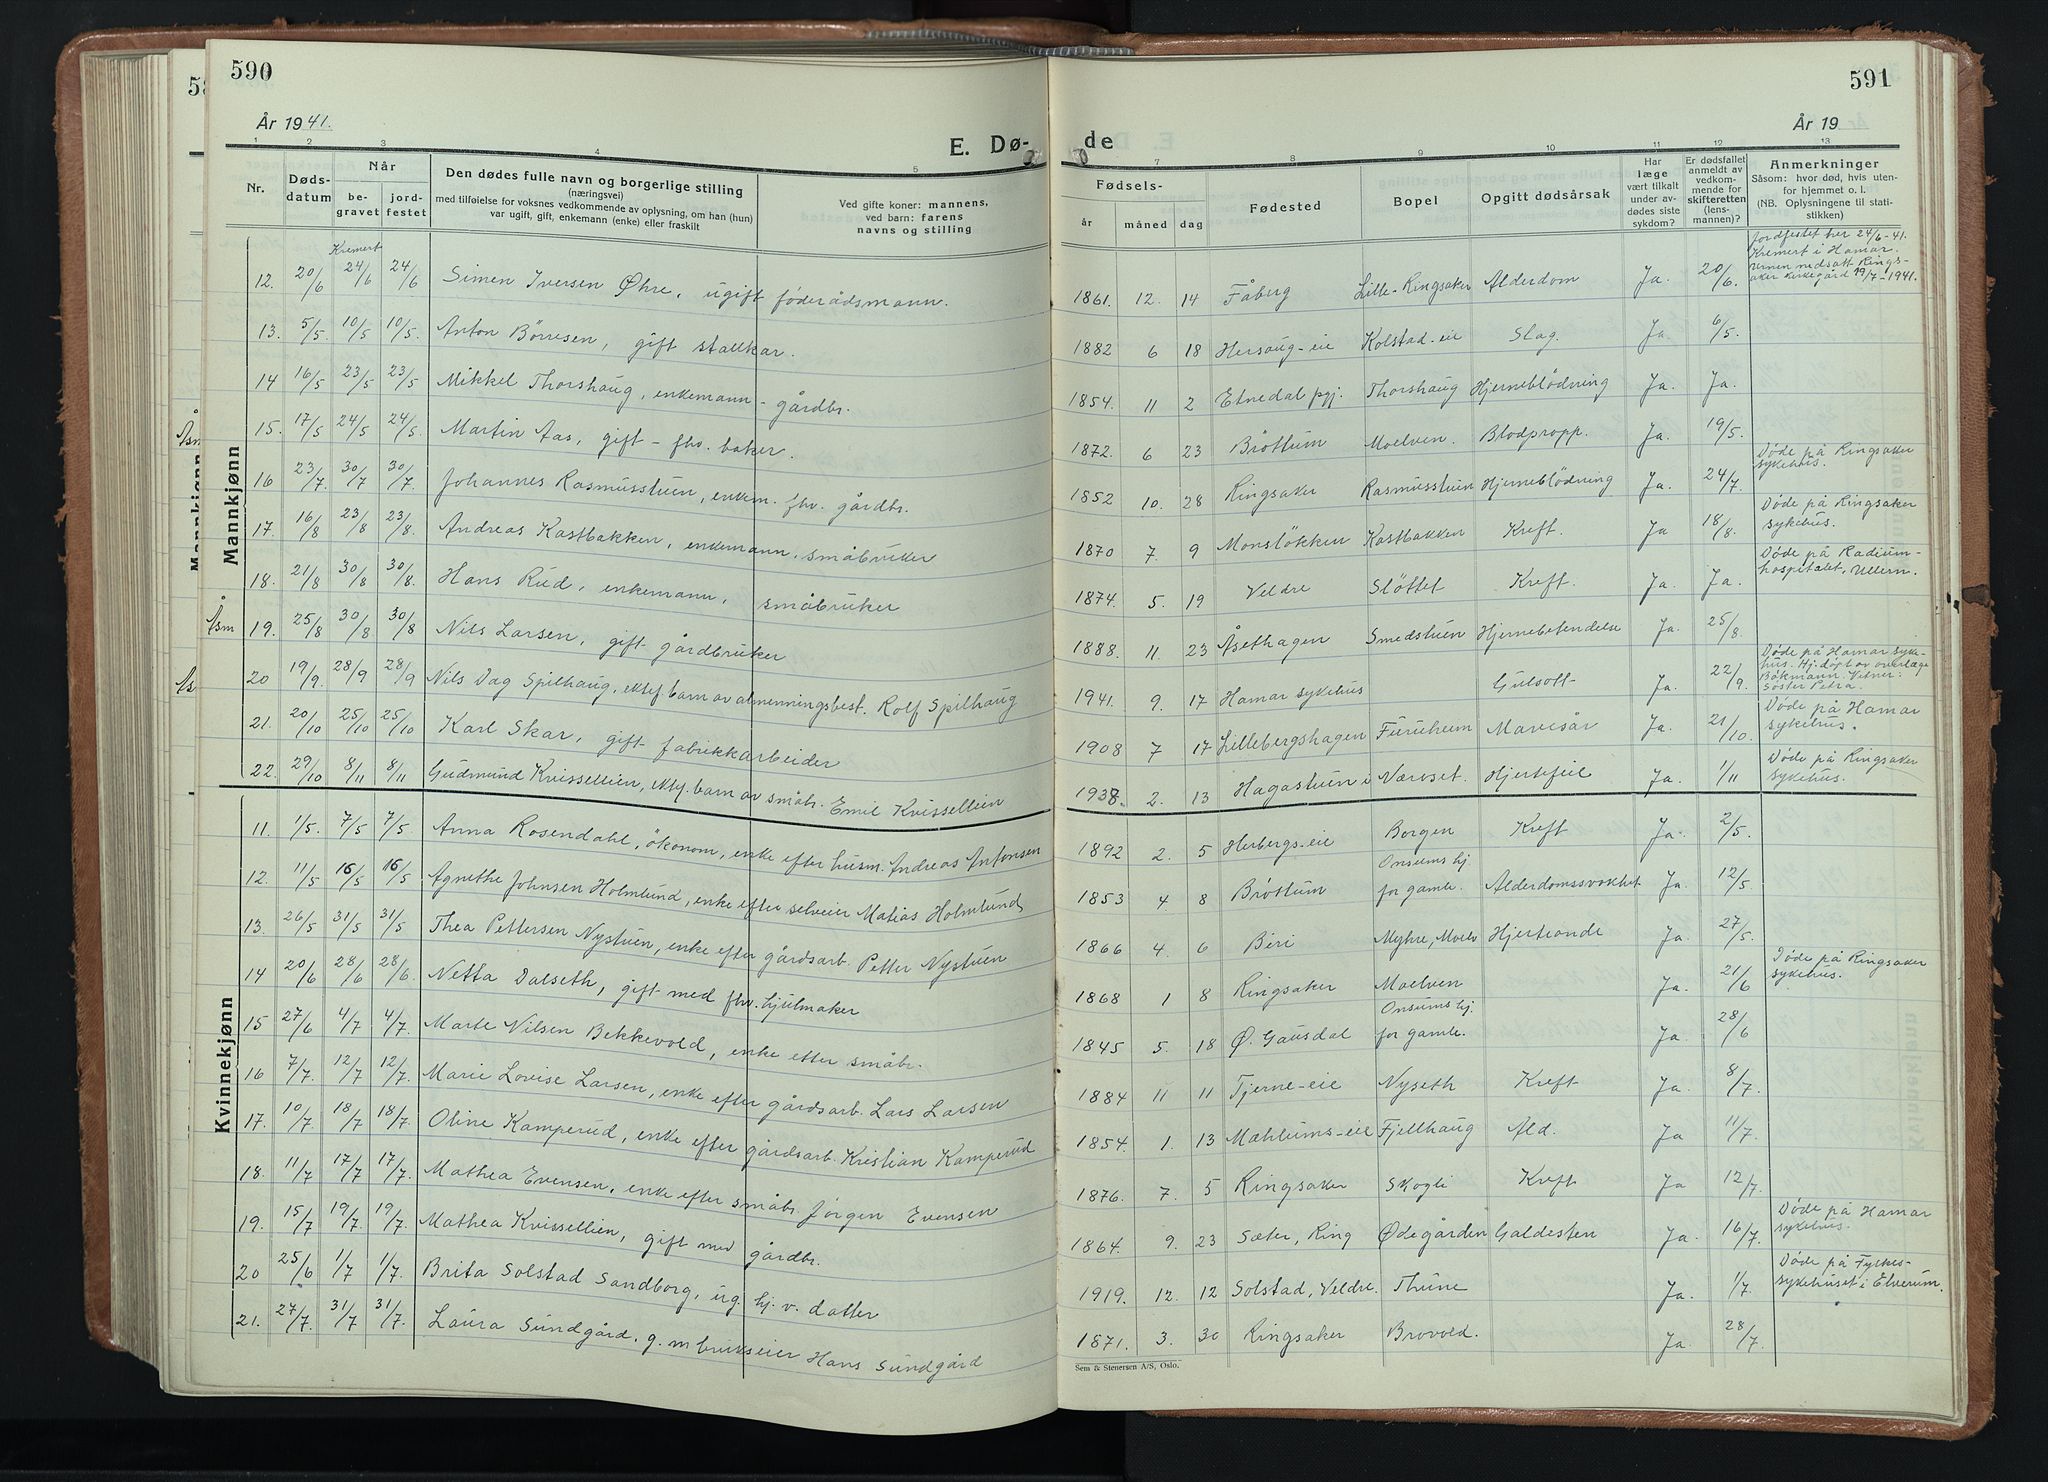 590
År 1941.
E. Dø-
1 2 3 4 5
Nr. Døds-datum Når be-gravet jord-festet
Den dødes fulle navn og borgerlige stilling
(næringsvei)
med tilføielse for voksnes vedkommende av oplysning, om han (hun)
var ugift, gift, enkemann (enke) eller fraskilt
Ved gifte koner: mannens,
ved barn: farens
navns og stilling
Mannkjønn
Kremert
12. 20/6 24/6 24/6 Simen Iversen Øhre, ugift føderådsmann.
13. 5/5. 10/5 10/5 Anton Børresen, gift stallkar.
14 16/5 23/5 23/5. Mikkel Thorshaug, enkemann - gårdbr.
15. 17/5 24/5 24/5. Martin Aas, gift - fhv. baker.
16 23/7. 30/7 30/7. Johannes Rasmusstuen, enkem. fhv. gårdbr.
17. 16/8 23/8 23/8. Andreas Kastbakken, enkemann. småbruker
18. 21/8 30/8 30/8. Hans Rud, enkemann, småbruker
19. 25/8 30/8 30/8 Nils Larsen, gift gårdbruker
20 19/9. 28/9 28/9 Nils Dag Spilhaug, ektef barn av almenningsbest. Rolf Spilhaug
21. 20/10 25/10 25/10 Karl Skar, gift fabrikkarbeider
22. 29/10 8/11 8/11 Gudmund Kvissellien, ektf. barn av småbr. Emil Kvissellien
Kvinnekjønn
11. 1/5. 7/5 7/5 Anna Rosendahl, økonom, enke efter husm. Andreas Antonsen
12. 11/5 16/5 16/5 Agnethe Johnsen Holmlund, enke efter selveier Matias Holmlund
13. 26/5 31/5 31/5 Thea Pettersen Nystuen, enke efter gårdsarb. Petter Nystuen
14 20/6 28/6 28/6. Netta Dalseth, gift med fhv. hjulmaker
15 27/6 4/7 4/7. Marte Nilsen Bekkevold, enke efter småbr.
16 7/7. 12/7 12/7. Marie Lovise Larsen, enke efter gårdsarb. Lars Larsen
17. 10/7. 18/7 18/7. Oline Kamperud, enke efter gårdsarb. Kristian Kamperud
18. 11/7 17/7 17/7. Mathea Evensen, enke efter småbr. Jørgen Evensen
19. 15/7 19/7 19/7. Mathea Kvissellien, gift med gårdbr.
20 25/6 1/7 1/7. Brita Solstad Sandborg, ug. hj. v. datter
21. 27/7. 31/7 31/7. Laura Sundgård, g. m bruksseier Hans Sundgård
591
År 19
de
7 8 9 10 11 12 13
Fødsels-
år måned dag
Fødested Bopel Opgitt dødsårsak
Har læge vært tilkalt under av-dødes siste sykdom?
Er dødsfallet anmeldt av vedkom-mende for skifteretten (lens-mannen)?
Anmerkninger
Såsom: hvor død, hvis uten-for hjemmet o. l.
(NB. Oplysningene til stati-stikken)
1861. 12. 14 Fåberg Lille-Ringsaker Alderdom Ja. 20/6. Jordfestet her 24/6-41. Kremert i Hamar. Urnen nedsatt Rings-aker kirkegård 19/7-1941.
1882 6 18 Hersaug-eie Kolstad-eie Slag. Ja 6/5.
1854. 11 2 Etnedal pgj. Thorshaug Hjerneblödning Ja. Ja.
1872. 6 23 Brøttum Moelven. Blodpropp. Ja. 19/5.
1852 10. 28 Ringsaker Rasmusstuen Hjerneblödning Ja. 24/7. Døde på Ringsaker sykehus.
1870 7. 9 Monsløkken Kastbakken Kreft. Ja 18/8. Døde på Ringsaker sykehus.
1874. 5. 19 Veldre Sløttet Kreft. Ja. Ja. Døde på Radium-hospitalet, Ullern.
1888. 11. 23 Åsethagen Smedstuen Hjernebetendelse Ja. 25/8.
1941. 9. 17 Hamar sykehus Gulsott Ja. 22/9. Døde på Hamar syke-hus. Hj. døpt av overlæge Bøkmann. Vitner: Søster Petra.
1908 7 17 Lillebergshagen Furuheim Mavesår Ja. 21/10. Døde på Hamar sykehus.
1938. 2. 13 Hagastuen i Næroset. Hjertefeil Ja. 1/11 Døde på Ringsaker sykehus.
1892 2. 5 Herbergs-eie Borgen Kreft Ja. 2/5.
1853 4. 8 Brøttum Onsums hj. for gamle. Alderdomssvakhet Ja. 12/5.
1866 4. 6 Biri Myhre, Moelv Hjerteonde Ja. 27/5.
1868 1 8 Ringsaker Moelven Ja. 21/6 Døde på Ringsaker sykehus.
1845 5. 18 Ø. Gausdal Onsums hj. for gamle. Ja 28/6
1884 11 11 Tjerne-eie Nyseth Kreft Ja 8/7.
1854. 1. 13 Mæhlums-eie Fjellhaug Ald. Ja 11/7.
1876. 7. 5 Ringsaker Skogli Kreft Ja 12/7.
1864. 9. 23 Sæter, Ring Ødegården Galdesten Ja. 16/7. Døde på Hamar sykehus.
1919. 12. 12 Solstad, Veldre. Thune Ja. 1/7. Døde på Fylkes-sykehuset i Elverum.
1871. 3. 30 Ringsaker Brovold. Ja. 28/7.
Sem & Stenersen A/S, Oslo.